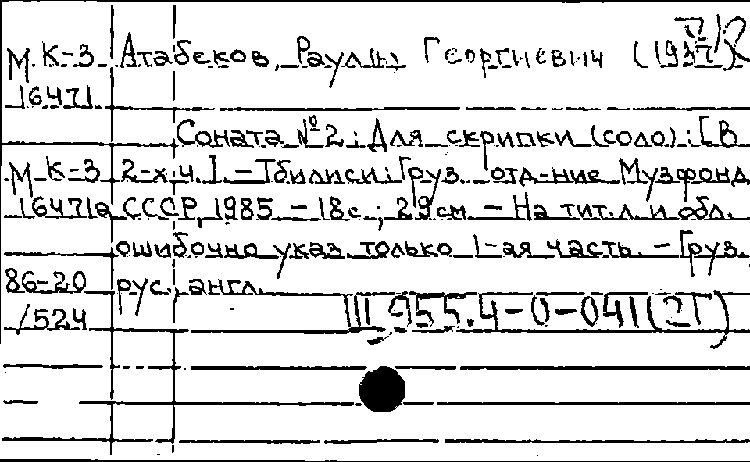 М К-3 Атабеков, Раул(ь) Георгиевич (1937)
16471
Соната №2 : Для скрипки (соло) : [В
М К-3 2-х ч.]. - Тбилиси : Груз. отд-ние Музфонд
16471а СССР, 1985. - 18 с. ; 29 см. - На тит. л. и обл.
ошибочно указ. только 1-ая часть. - Груз.,
86-20 рус., англ.
/524 III 955.4-0-041(2Г)